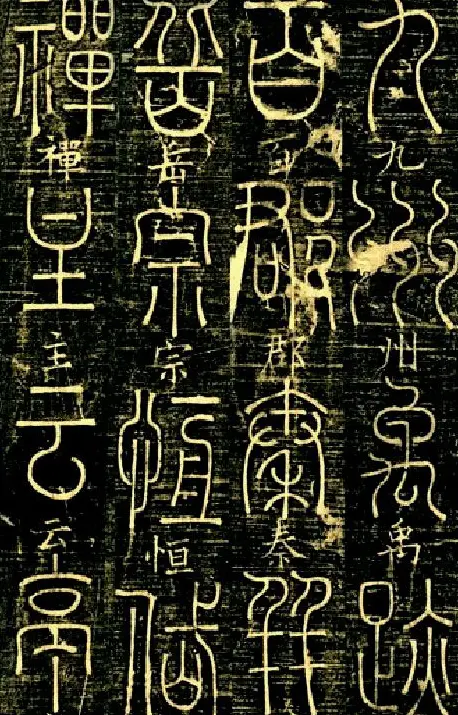 九九州州禹禹跡
百百郡郡秦秦并
岳岳宗宗恆恒岱
禪禪主主云云亭